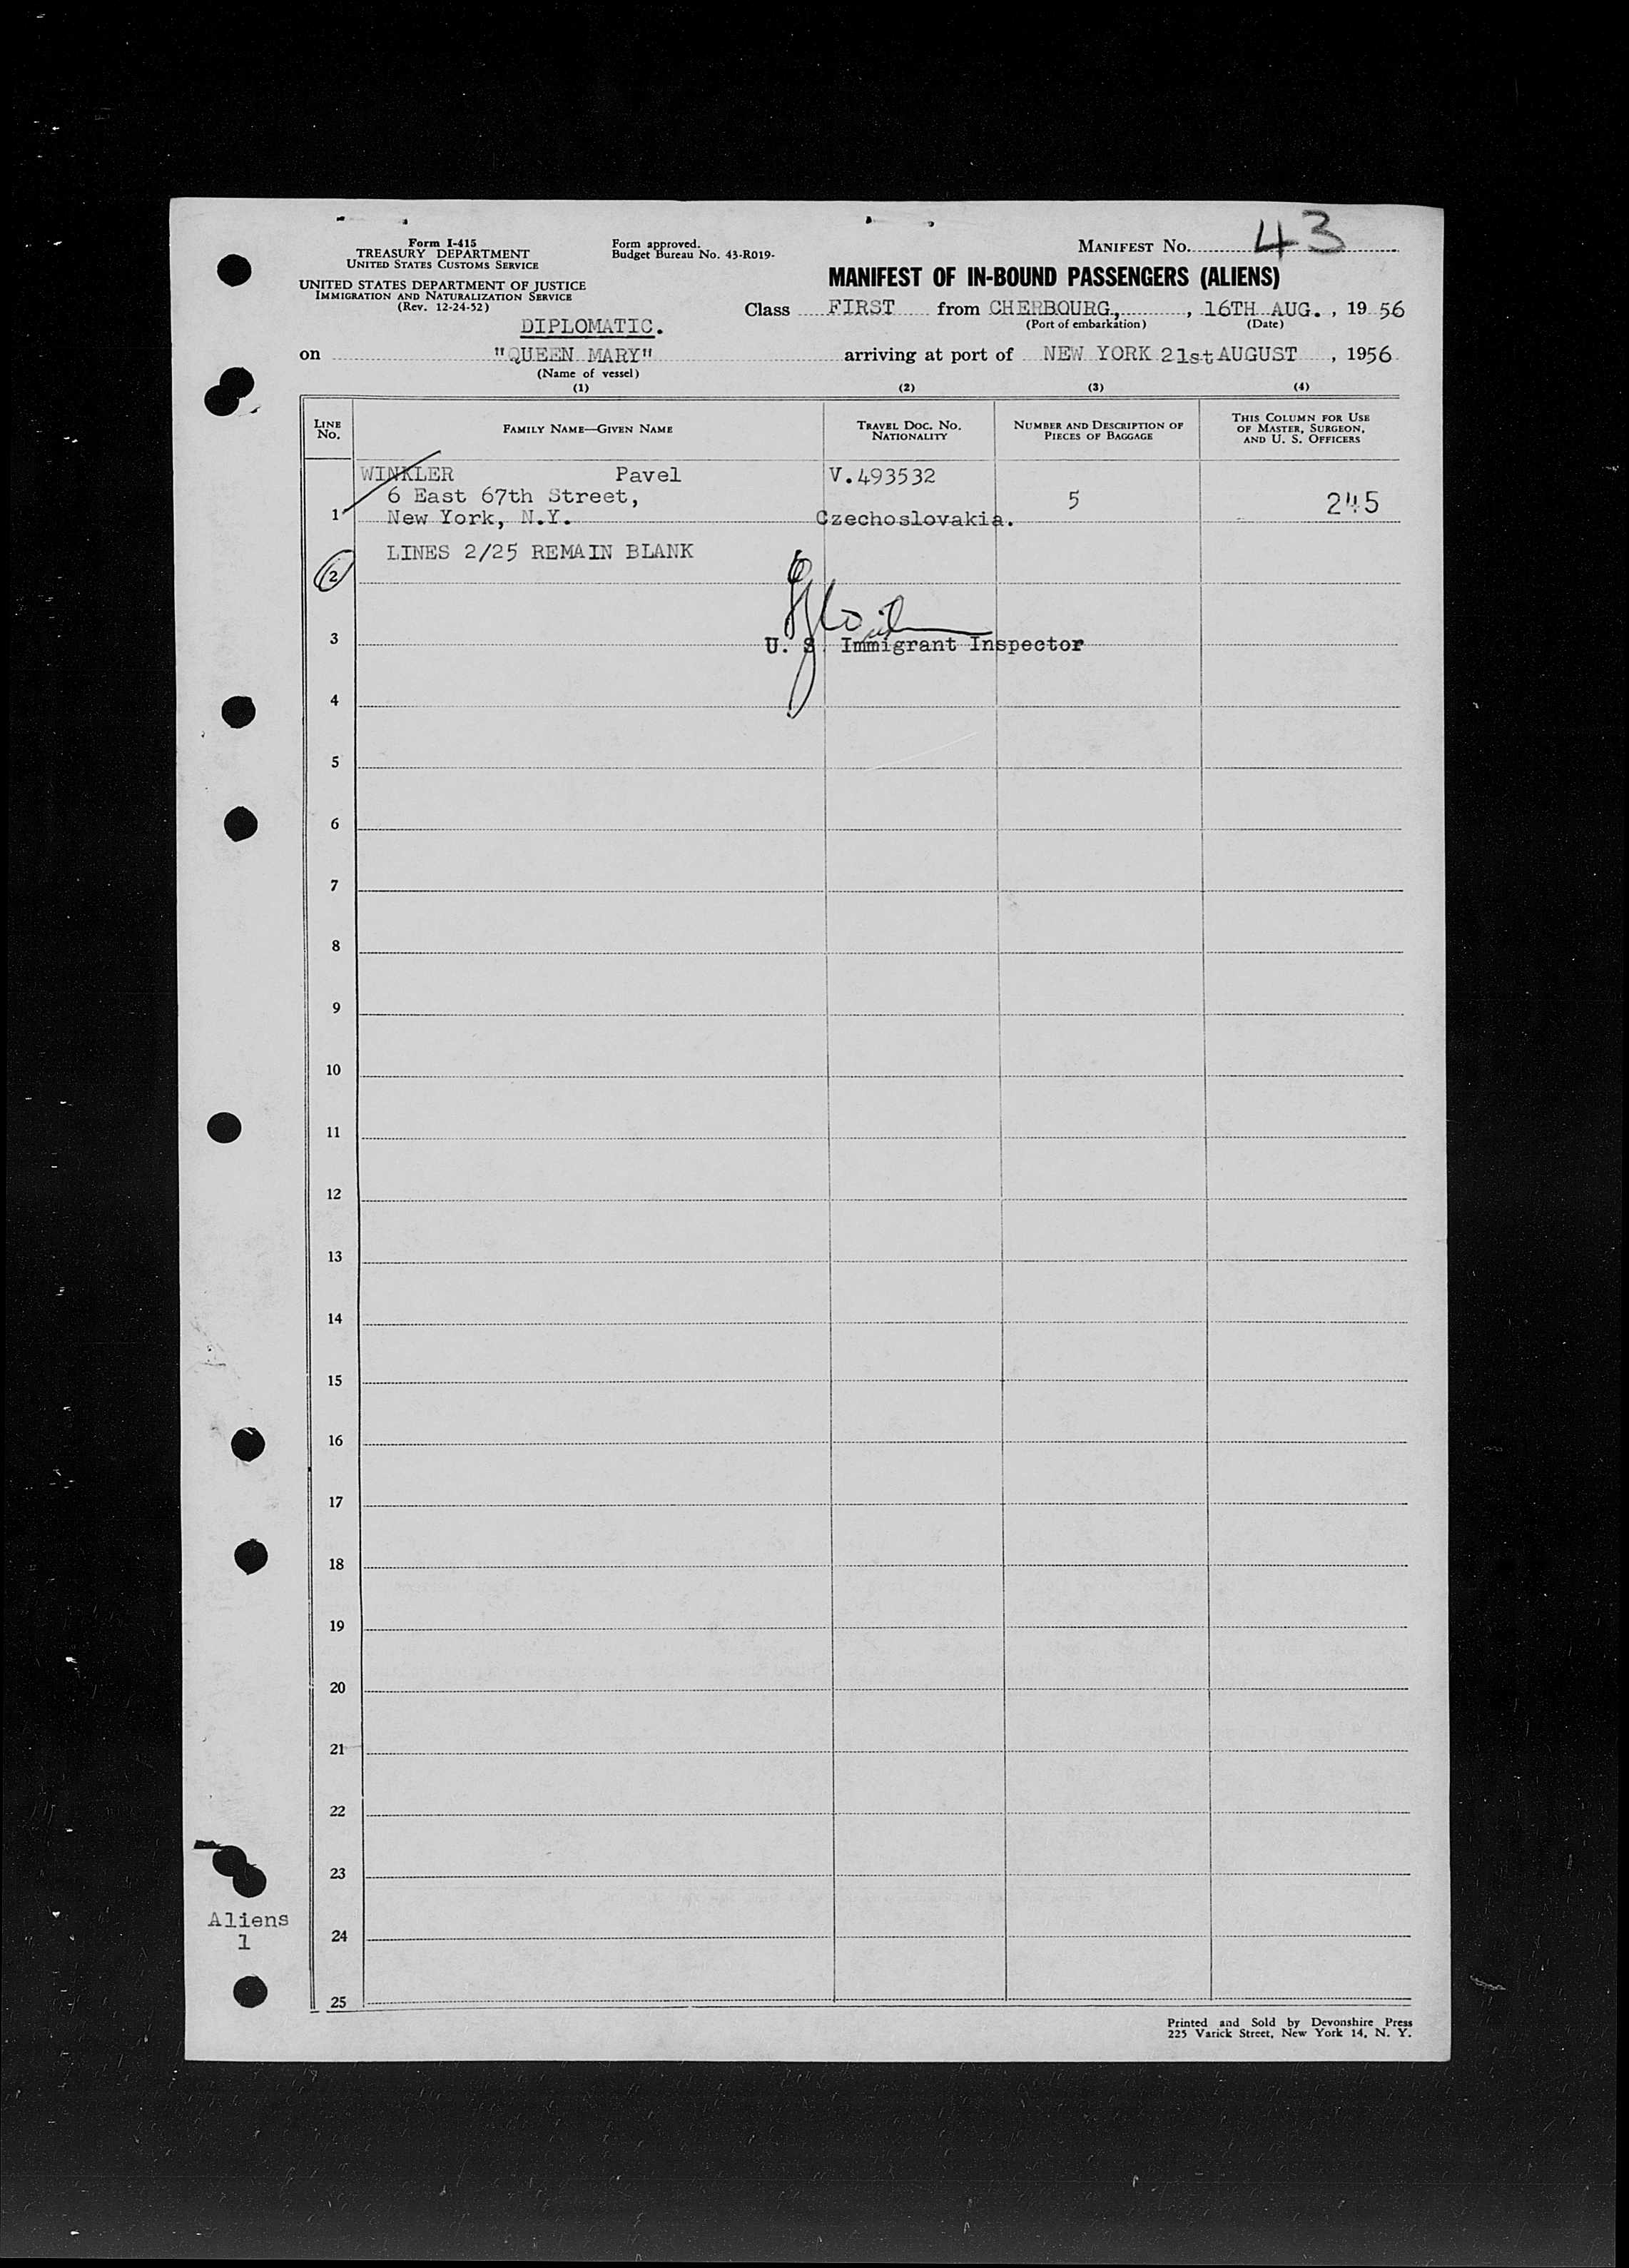 Form I-415
TREASURY DEPARTMENT
UNITED STATES CUSTOMS SERVICE
UNITED STATES DEPARTMENT OF JUSTICE
IMMIGRATION AND NATURALIZATION SERVICE
(Rev. 12-24-52)
Form approved.
Budget Bureau No. 43-R019-
MANIFEST NO. 43
MANIFEST OF IN-BOUND PASSENGERS (ALIENS)
Class FIRST from CHERBOURG, , 16TH AUG. , 19 56
(Port of embarkation) (Date)
DIPLOMATIC.
on "QUEEN MARY" arriving at port of NEW YORK 21st AUGUST , 1956
(Name of vessel)
(1) (2) (3) (4)
LINE NO. FAMILY NAME—GIVEN NAME TRAVEL DOC. NO. NATIONALITY NUMBER AND DESCRIPTION OF PIECES OF BAGGAGE THIS COLUMN FOR USE OF MASTER, SURGEON, AND U. S. OFFICERS
WINKLER Pavel V.493532
6 East 67th Street, 5 245
1 New York, N.Y. Czechoslovakia.
LINES 2/25 REMAIN BLANK
2
3 U. S. Immigrant Inspector
4
5
6
7
8
9
10
11
12
13
14
15
16
17
18
19
20
21
22
23
Aliens
1
24
25
Printed and Sold by Devonshire Press
225 Varick Street, New York 14, N. Y.